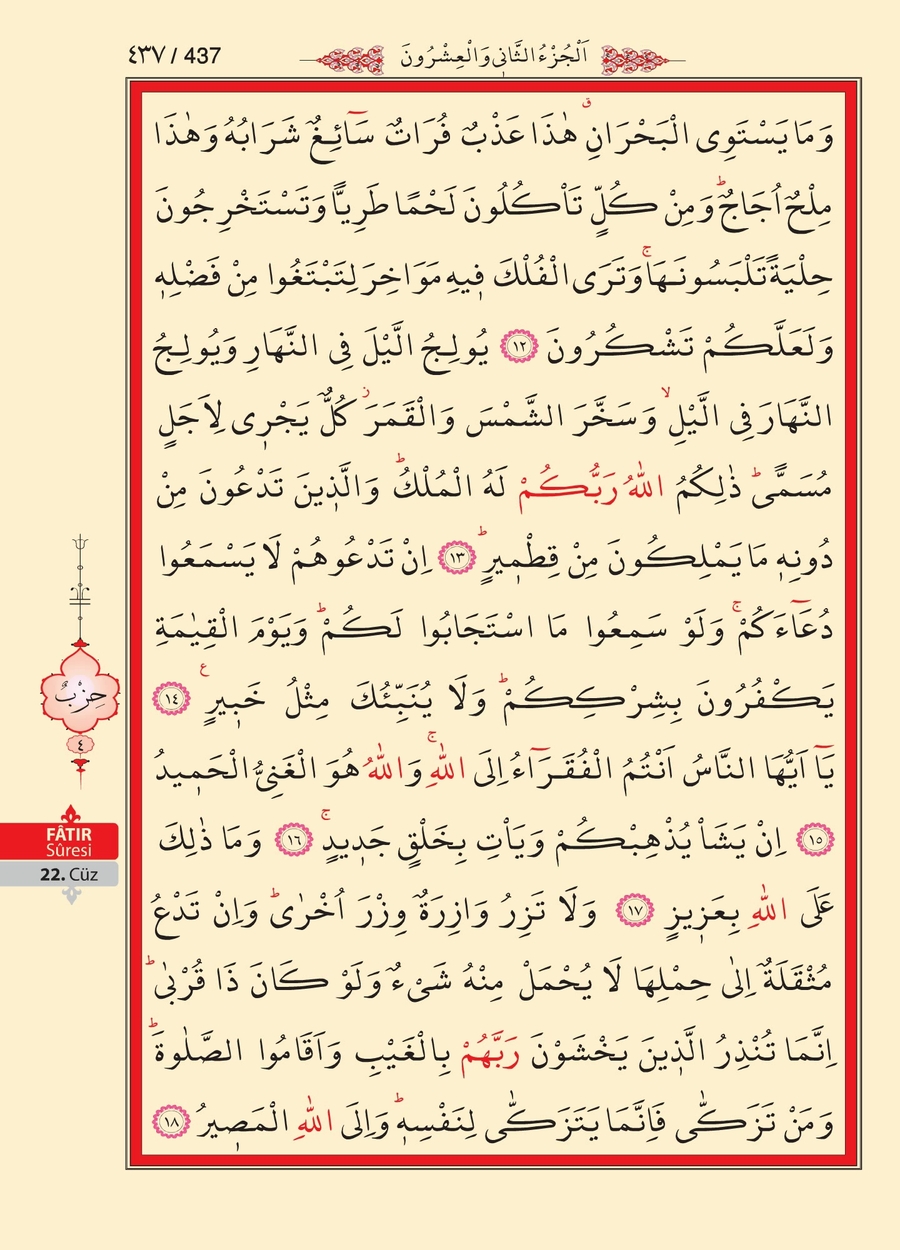 ٤٣٧ / 437
اَلْجُزْءُ الثَّانِي وَالْعِشْرُونَ
وَمَا يَسْتَوِى الْبَحْرَانِۗ هٰذَا عَذْبٌ فُرَاتٌ سَٓائِغٌ شَرَابُهُ وَهٰذَا
مِلْحٌ اُجَاجٌۜ وَمِنْ كُلٍّ تَأْكُلُونَ لَحْمًا طَرِيًّا وَتَسْتَخْرِجُونَ
حِلْيَةً تَلْبَسُونَهَاۚ وَتَرَى الْفُلْكَ ف۪يهِ مَوَاخِرَ لِتَبْتَغُوا مِنْ فَضْلِه۪
وَلَعَلَّكُمْ تَشْكُرُونَ ﴿١٢﴾ يُولِجُ الَّيْلَ فِى النَّهَارِ وَيُولِجُ
النَّهَارَ فِى الَّيْلِۙ وَسَخَّرَ الشَّمْسَ وَالْقَمَرَۘ كُلٌّ يَجْر۪ى لِاَجَلٍ
مُسَمًّىۜ ذٰلِكُمُ اللّٰهُ رَبُّكُمْ لَهُ الْمُلْكُۜ وَالَّذ۪ينَ تَدْعُونَ مِنْ
دُونِه۪ مَا يَمْلِكُونَ مِنْ قِطْم۪يرٍۜ ﴿١٣﴾ اِنْ تَدْعُوهُمْ لَا يَسْمَعُوا
دُعَٓاءَكُمْۚ وَلَوْ سَمِعُوا مَا اسْتَجَابُوا لَكُمْۜ وَيَوْمَ الْقِيٰمَةِ
يَكْفُرُونَ بِشِرْكِكُمْۜ وَلَا يُنَبِّئُكَ مِثْلُ خَب۪يرٍ۟ ﴿١٤﴾
يَٓا اَيُّهَا النَّاسُ اَنْتُمُ الْفُقَرَٓاءُ اِلَى اللّٰهِۚ وَاللّٰهُ هُوَ الْغَنِىُّ الْحَم۪يدُ
﴿١٥﴾ اِنْ يَشَأْ يُذْهِبْكُمْ وَيَأْتِ بِخَلْقٍ جَد۪يدٍۚ ﴿١٦﴾ وَمَا ذٰلِكَ
عَلَى اللّٰهِ بِعَز۪يزٍ ﴿١٧﴾ وَلَا تَزِرُ وَازِرَةٌ وِزْرَ اُخْرٰىۜ وَاِنْ تَدْعُ
مُثْقَلَةٌ اِلٰى حِمْلِهَا لَا يُحْمَلْ مِنْهُ شَىْءٌ وَلَوْ كَانَ ذَا قُرْبٰىۜ
اِنَّمَا تُنْذِرُ الَّذ۪ينَ يَخْشَوْنَ رَبَّهُمْ بِالْغَيْبِ وَاَقَامُوا الصَّلٰوةَۜ
وَمَنْ تَزَكّٰى فَاِنَّمَا يَتَزَكّٰى لِنَفْسِه۪ۜ وَاِلَى اللّٰهِ الْمَص۪يرُ ﴿١٨﴾
حِزْبٌ
٤
FÂTIR
Sûresi
22. Cüz